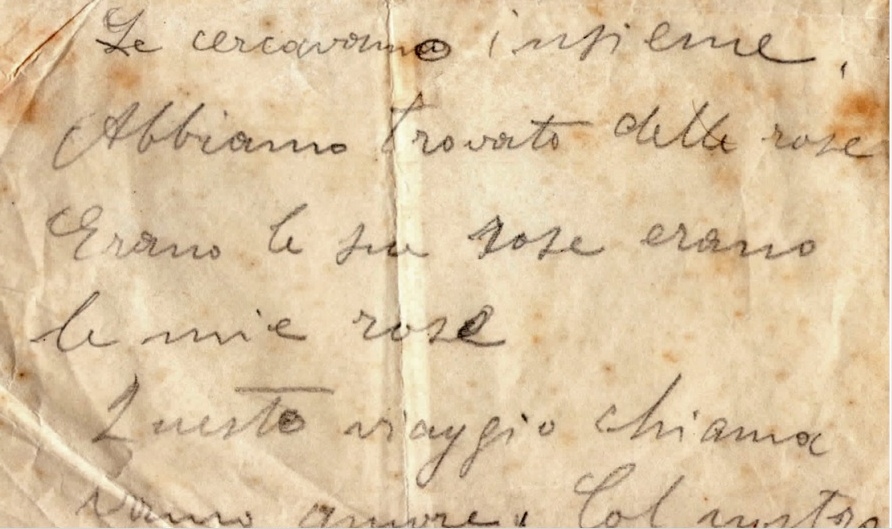 Le cercavamo insieme,
Abbiamo trovato delle rose
Erano le sue rose erano
le mie rose
Questo viaggio chiama
vamo amore. Col nostro